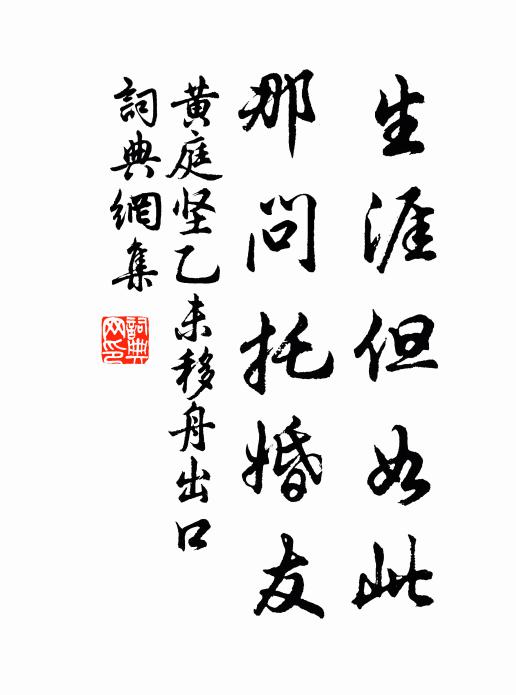 生涯但如此
那问托婚友
黄庭坚乙未移舟出口
詞典網集
詞典网印